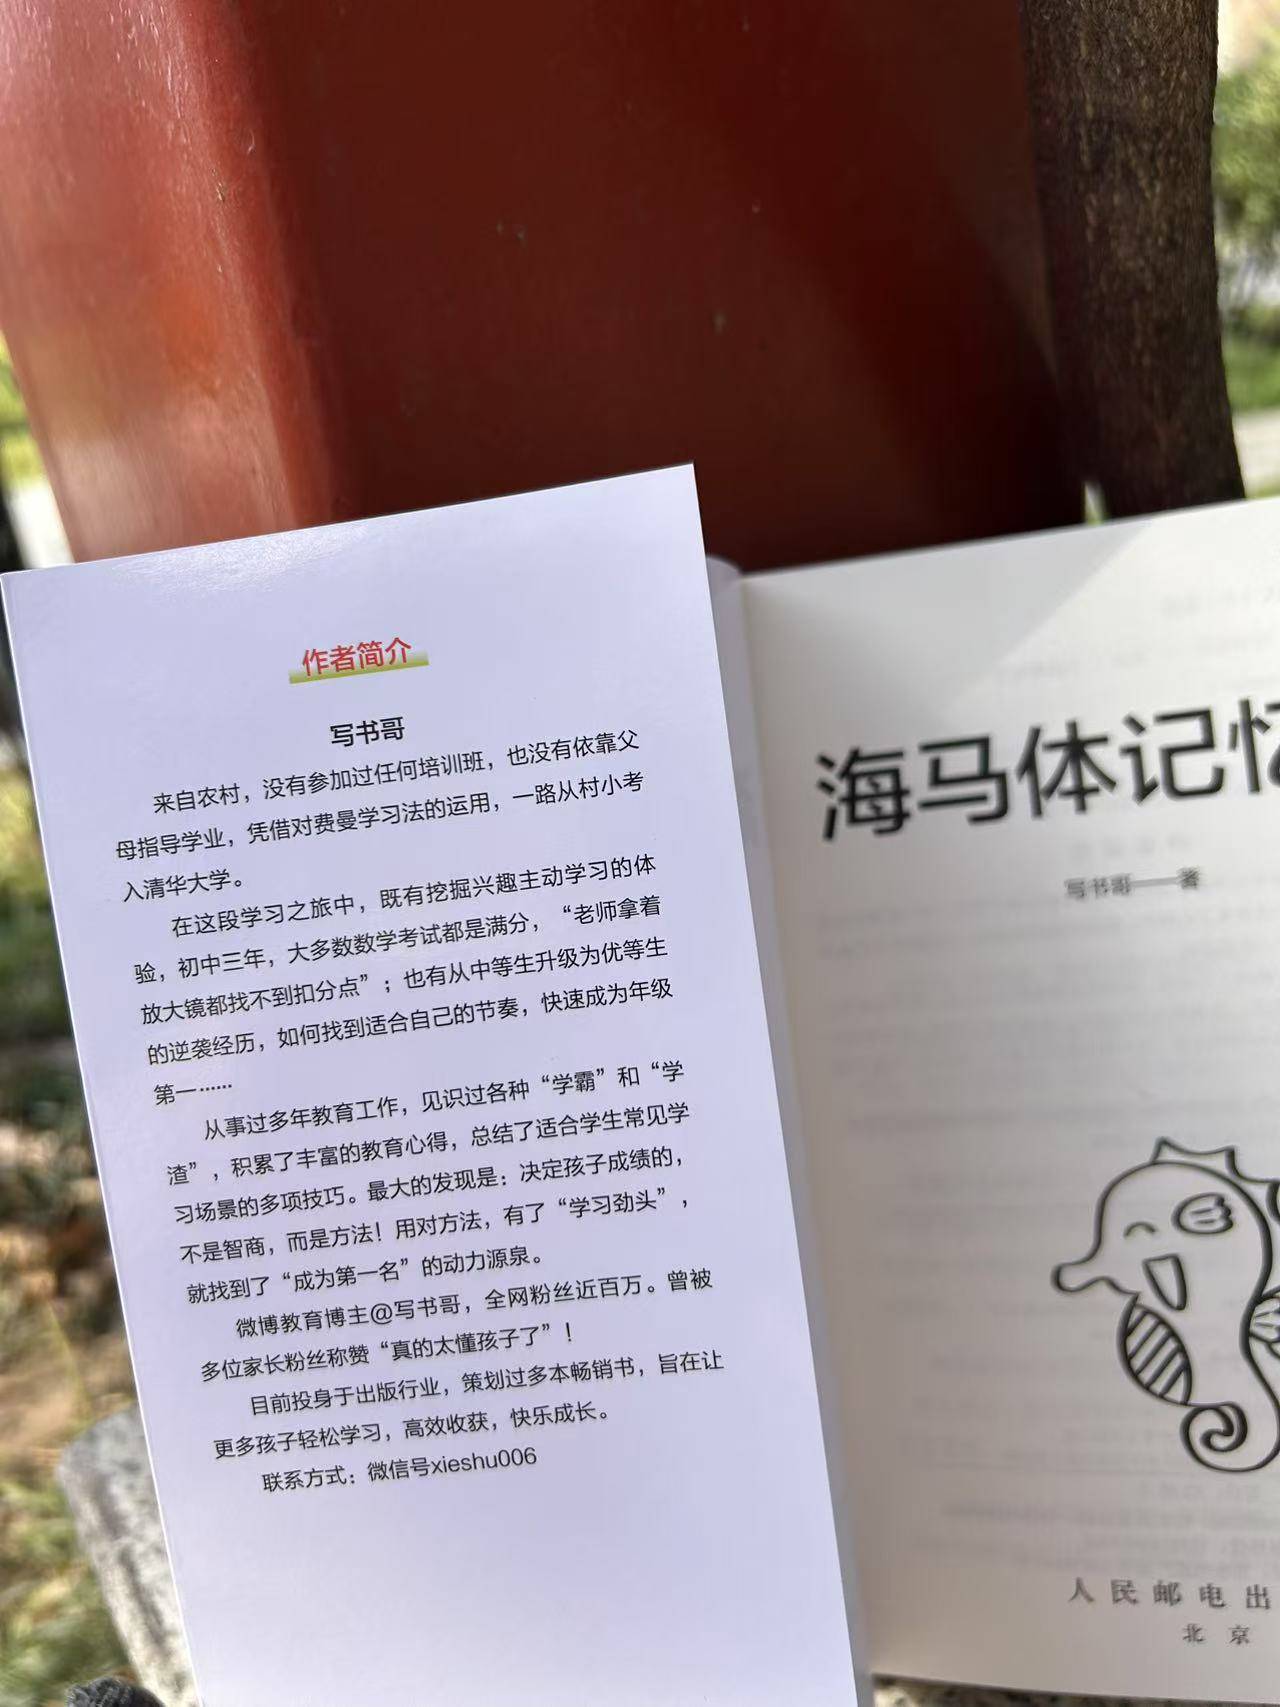 作者简介
写书哥
来自农村，没有参加过任何培训班，也没有依靠父
母指导学业，凭借对费曼学习法的运用，一路从村小考
入清华大学。
在这段学习之旅中，既有挖掘兴趣主动学习的体
验，初中三年，大多数数学考试都是满分，“老师拿着
放大镜都找不到扣分点”；也有从中等生升级为优等生
的逆袭经历，如何找到适合自己的节奏，快速成为年级
第一……
从事过多年教育工作，见识过各种“学霸”和“学
渣”，积累了丰富的教育心得，总结了适合学生常见学
习场景的多项技巧。最大的发现是：决定孩子成绩的，
不是智商，而是方法！用对方法，有了“学习劲头”，
就找到了“成为第一名”的动力源泉。
微博教育博主@写书哥，全网粉丝近百万。曾被
多位家长粉丝称赞“真的太懂孩子了”！
目前投身于出版行业，策划过多本畅销书，旨在让
更多孩子轻松学习，高效收获，快乐成长。
联系方式：微信号xieshu006
海马体记忆
写书哥——著
人民邮电出
北京